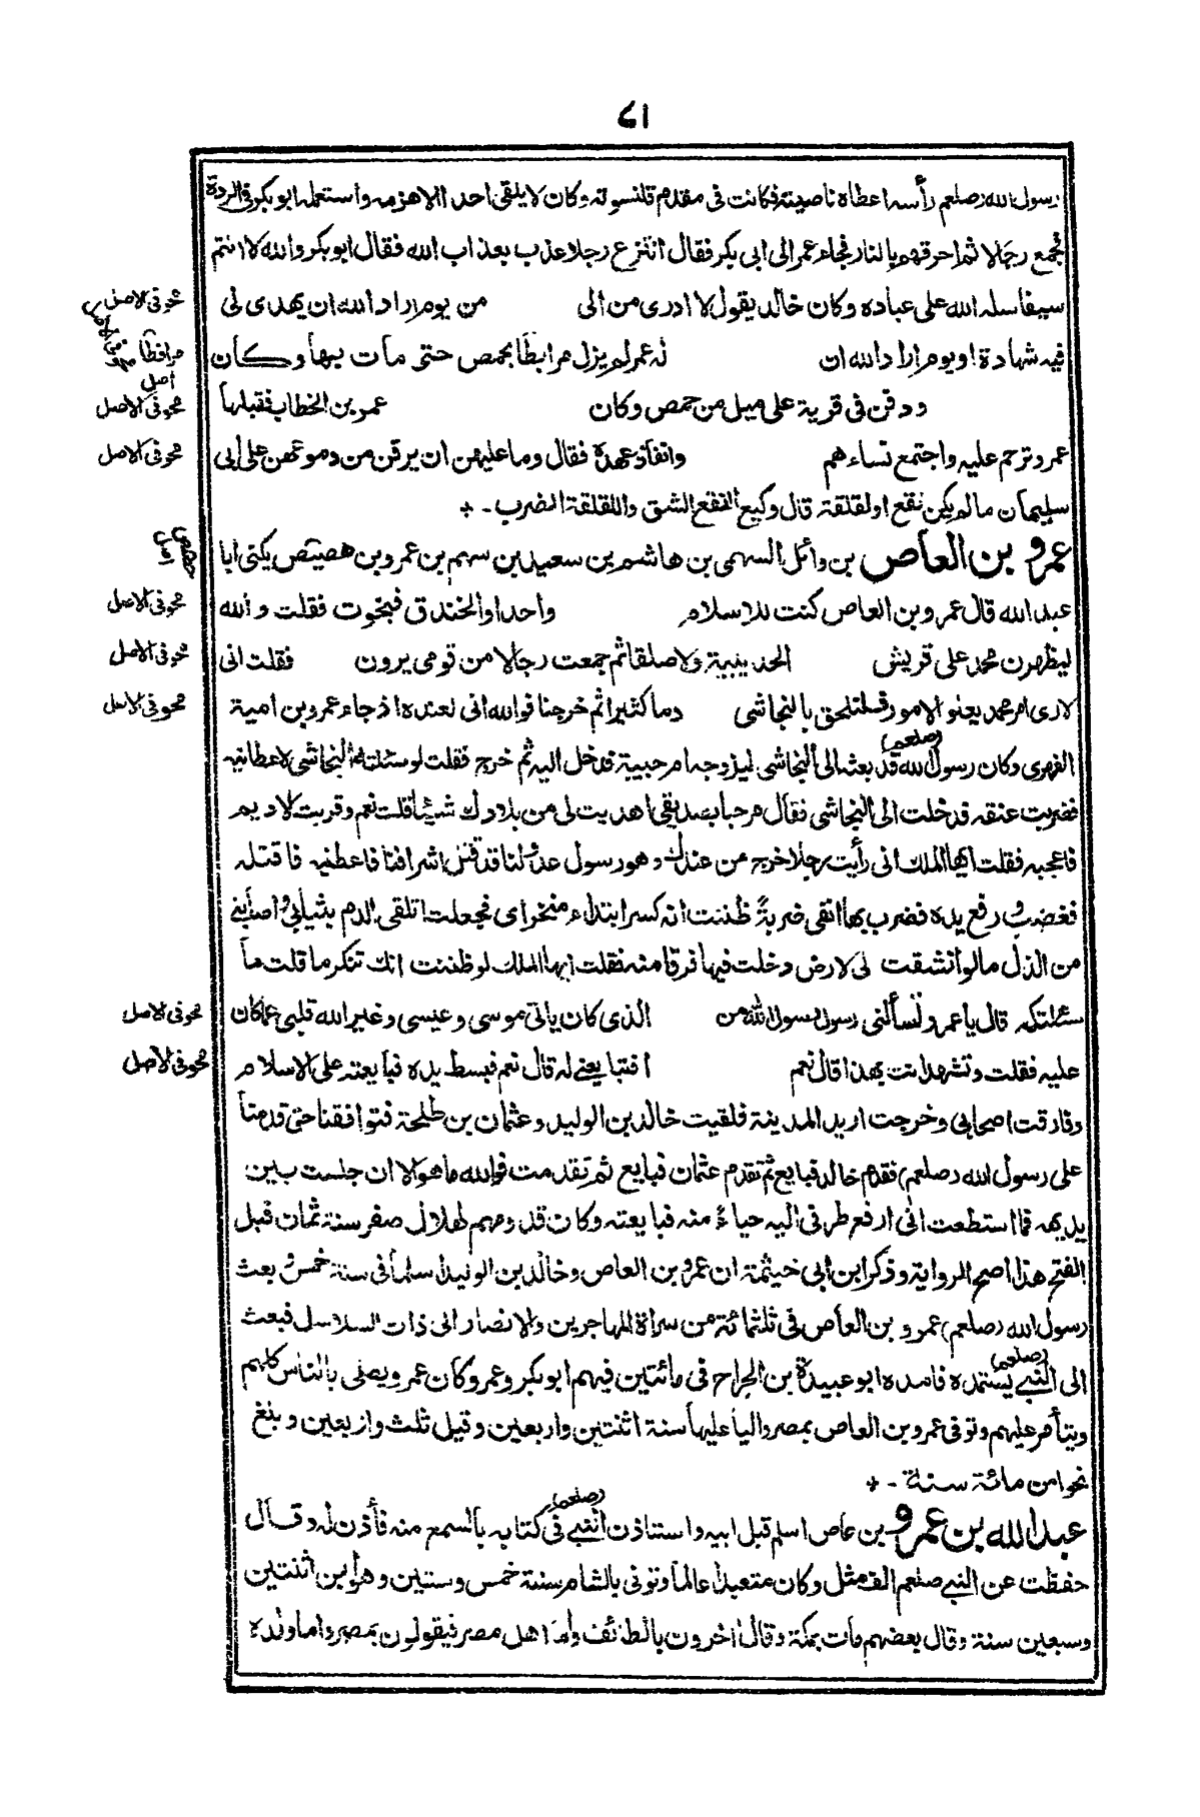 ٨١
رسول الله (صلعم) رأسه اعطاه ناصيته فكانت فى مقدم قلنسوته وكان لا يلقى احدا الا هزمه واستعمله ابوبكر فى الردة
فجمع رجالا ثم احرقهم بالنار فجاء عمر الى ابى بكر فقال انتزع رجلا عذب بعذاب الله فقال ابوبكر والله لا اشتم
سيفا سله الله على عباده وكان خالد يقول لا ادرى من الى من يوم اراد الله ان يهدى لى
محو فى الاصل
فيه شهادة او يوم اراد الله ان له عمر لم يزل مرابطا بحمص حتى مات بها وكان
مرافطا
اصل
ودفن فى قرية على ميل من حمص وكان عمر بن الخطاب فقبلها
محو فى الاصل
عمر وترحم عليه واجتمع نساءهم وانفاذ عهدة فقال وما عليهن ان يرقن من دموعهن على ابى
محو فى الاصل
سليمان ما لم يكن نقع او لقلقة قال وكيع النقع الشق واللقلقة الضرب - +
عمرو بن العاص بن وائل السهمى بن هاشم بن سعيد بن سهم بن عمرو بن هصيص يكنى ابا
عبد الله قال عمرو بن العاص كنت للاسلام واحدا والخندق فنجوت فقلت والله
محو فى الاصل
ليظهرن محمد على قريش الحديبية ولا صلقا ثم جمعت رجالا من قومى يرون فقلت انى
محو فى الاصل
لارى امر محمد يعلو الامور قسلتلحق بالنجاشى دما كثيرا ثم خرجنا فوالله انى لعنده اذ جاء عمرو بن امية
محو فى الاصل
الفهرى وكان رسول الله (صلعم) قد بعثه الى النجاشى ليزوجه ام حبيبة فدخل اليه ثم خرج فقلت لو سئلته النجاشى لاعطانيه
فضربت عنقه فدخلت الى النجاشى فقال مرحبا بصديقى اهديت لى من بلادك شيئا قلت نعم وقربت لاديم
فاعجبه فقلت ايها الملك انى رأيت رجلا خرج من عندك وهو رسول عدو لنا قد قتل اشرافنا فاعطنيه فاقتله
فغضب و رفع يده فضرب بها انفى ضربة ظننت انه كسر ابتداء منخراى فجعلت اتلقى الدم بثيابى واصابنى
من الذل ما لو انشقت لى لارض دخلت فيها فرقا منه فقلت ايها الملك لو ظننت انك تنكر ما قلت ما
سئلتكه قال يا عمرو تسألنى رسول رسول الله من الذى كان ياتى موسى وعيسى وغير الله قلبى عما كان
محو فى الاصل
عليه فقلت وتشهد انت بهذا قال نعم افتبايعنى له قال نعم فبسط يده فبايعته على الاسلام
محو فى الاصل
وفارقت اصحابى وخرجت اريد المدينة فلقيت خالد بن الوليد وعثمان بن طلحة فتوافقنا حتى قدمنا
على رسول الله (صلعم) فقدم خالد فبايع ثم تقدم عثمان فبايع ثم تقدمت فوالله ما هو الا ان جلست بين
يديه فما استطعت انى ارفع طرفى اليه حياءً منه فبايعته وكان قدومهم لهلال صفر سنة ثمان قبل
الفتح هذا اصح الرواية وذكر ابن ابى خيثمة ان عمرو بن العاص وخالد بن الوليد اسلما فى سنة خمس و بعث
رسول الله (صلعم) عمرو بن العاص فى ثلثمائة من سراة المهاجرين والانصار الى ذات السلاسل فبعث
الى النبى (صلعم) يستمده فامده ابوعبيدة بن الجراح فى مائتين فيهم ابوبكر وعمر وكان عمرو يصلى بالناس كلهم
ويتأمر عليهم وتوفى عمرو بن العاص بمصر واليا عليها سنة اثنتين واربعين وقيل ثلث واربعين وبلغ
نحوا من مائة سنة - +
عبد الله بن عمرو بن عاص اسلم قبل ابيه واستاذن النبى (صلعم) فى كتابه بالسمع منه فأذن له وقال
حفظت عن النبى صلعم الف مثل وكان متعبدا عالما وتوفى بالشام سنة خمس وستين وهو ابن اثنتين
وسبعين سنة وقال بعضهم مات بمكة وقال اخرون بالطائف واما اهل مصر فيقولون بمصر واما ولده